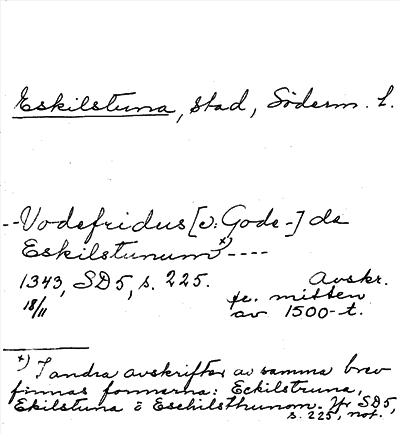 Eskilstuna, stad, Söderm. l.
--Vodefridus [v: Gode-] de
Eskilstunum x) ----
1343, SD5, s. 225.
18/11
Avskr.
fr. mitten
av 1500-t.
x) I andra avskrifter av samma brev
finnas formerna: Eckilstruna,
Ekilstuna o Eschilsthunom. Jfr SD5,
s. 225, not.